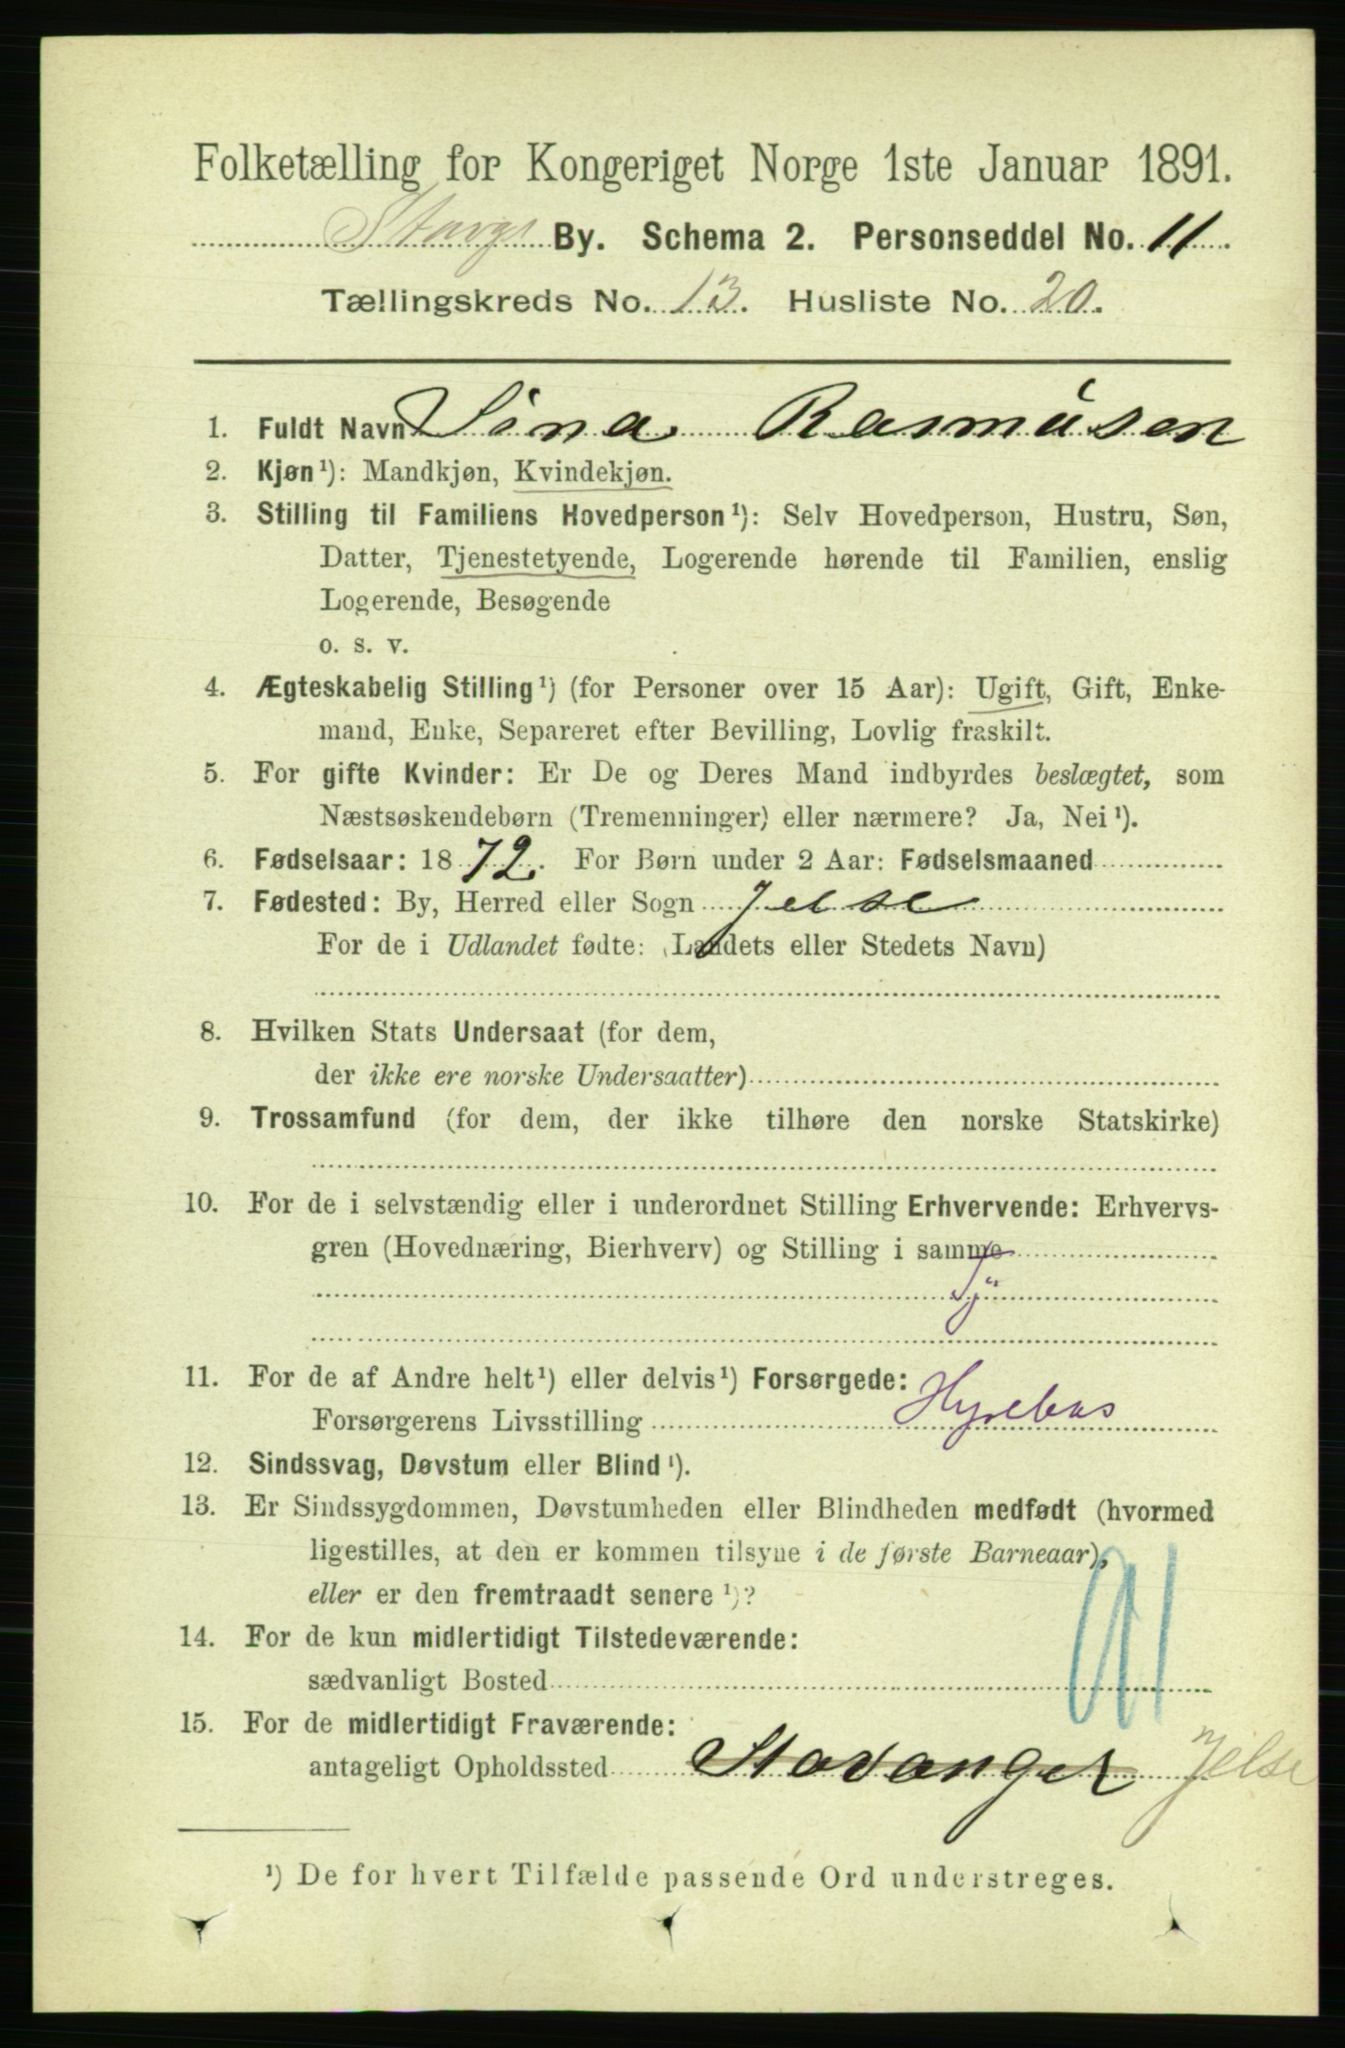 Folketælling for Kongeriget Norge 1ste Januar 1891.
Stavgr By. Schema 2. Personseddel No. 11.
Tællingskreds No. 13. Husliste No. 20.
1. Fuldt Navn Sina Rasmusen
2. Kjøn¹): Mandkjøn, Kvindekjøn.
3. Stilling til Familiens Hovedperson¹): Selv Hovedperson, Hustru, Søn,
Datter, Tjenestetyende, Logerende hørende til Familien, enslig
Logerende, Besøgende
o. s. v.
4. Ægteskabelig Stilling¹) (for Personer over 15 Aar): Ugift, Gift, Enke-
mand, Enke, Separeret efter Bevilling, Lovlig fraskilt.
5. For gifte Kvinder: Er De og Deres Mand indbyrdes beslægtet, som
Næstsøskendebørn (Tremenninger) eller nærmere? Ja, Nei¹).
6. Fødselsaar: 1872. For Børn under 2 Aar: Fødselsmaaned
7. Fødested: By, Herred eller Sogn Jelse
For de i Udlandet fødte: (Landets eller Stedets Navn)
8. Hvilken Stats Undersaat (for dem,
der ikke ere norske Undersaatter)
9. Trossamfund (for dem, der ikke tilhøre den norske Statskirke)
10. For de i selvstændig eller i underordnet Stilling Erhvervende: Erhvervs-
gren (Hovednæring, Bierhverv) og Stilling i samme
11. For de af Andre helt¹) eller delvis¹) Forsørgede:
Forsørgerens Livsstilling
12. Sindssvag, Døvstum eller Blind¹).
13. Er Sindssygdommen, Døvstumheden eller Blindheden medfødt (hvormed
ligestilles, at den er kommen tilsyne i de første Barneaar),
eller er den fremtraadt senere¹)?
14. For de kun midlertidigt Tilstedeværende:
sædvanligt Bosted
15. For de midlertidigt Fraværende:
antageligt Opholdssted Stavanger Jelse
¹) De for hvert Tilfælde passende Ord understreges.